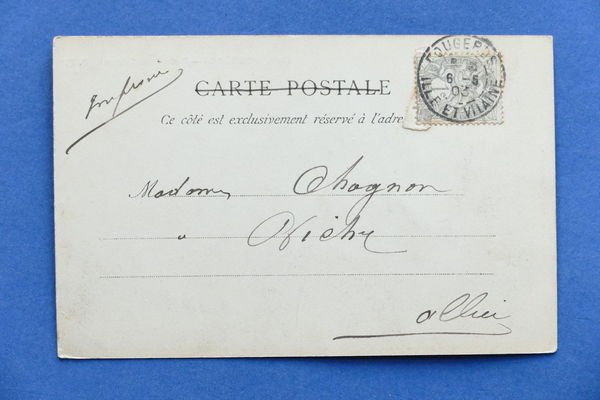 Imprimé
CARTE POSTALE
FOUGERES
6 - 6
03
ILLE ET VILAINE
Ce côté est exclusivement réservé à l'adre
Madame Chagnon
à Vichy
Allier